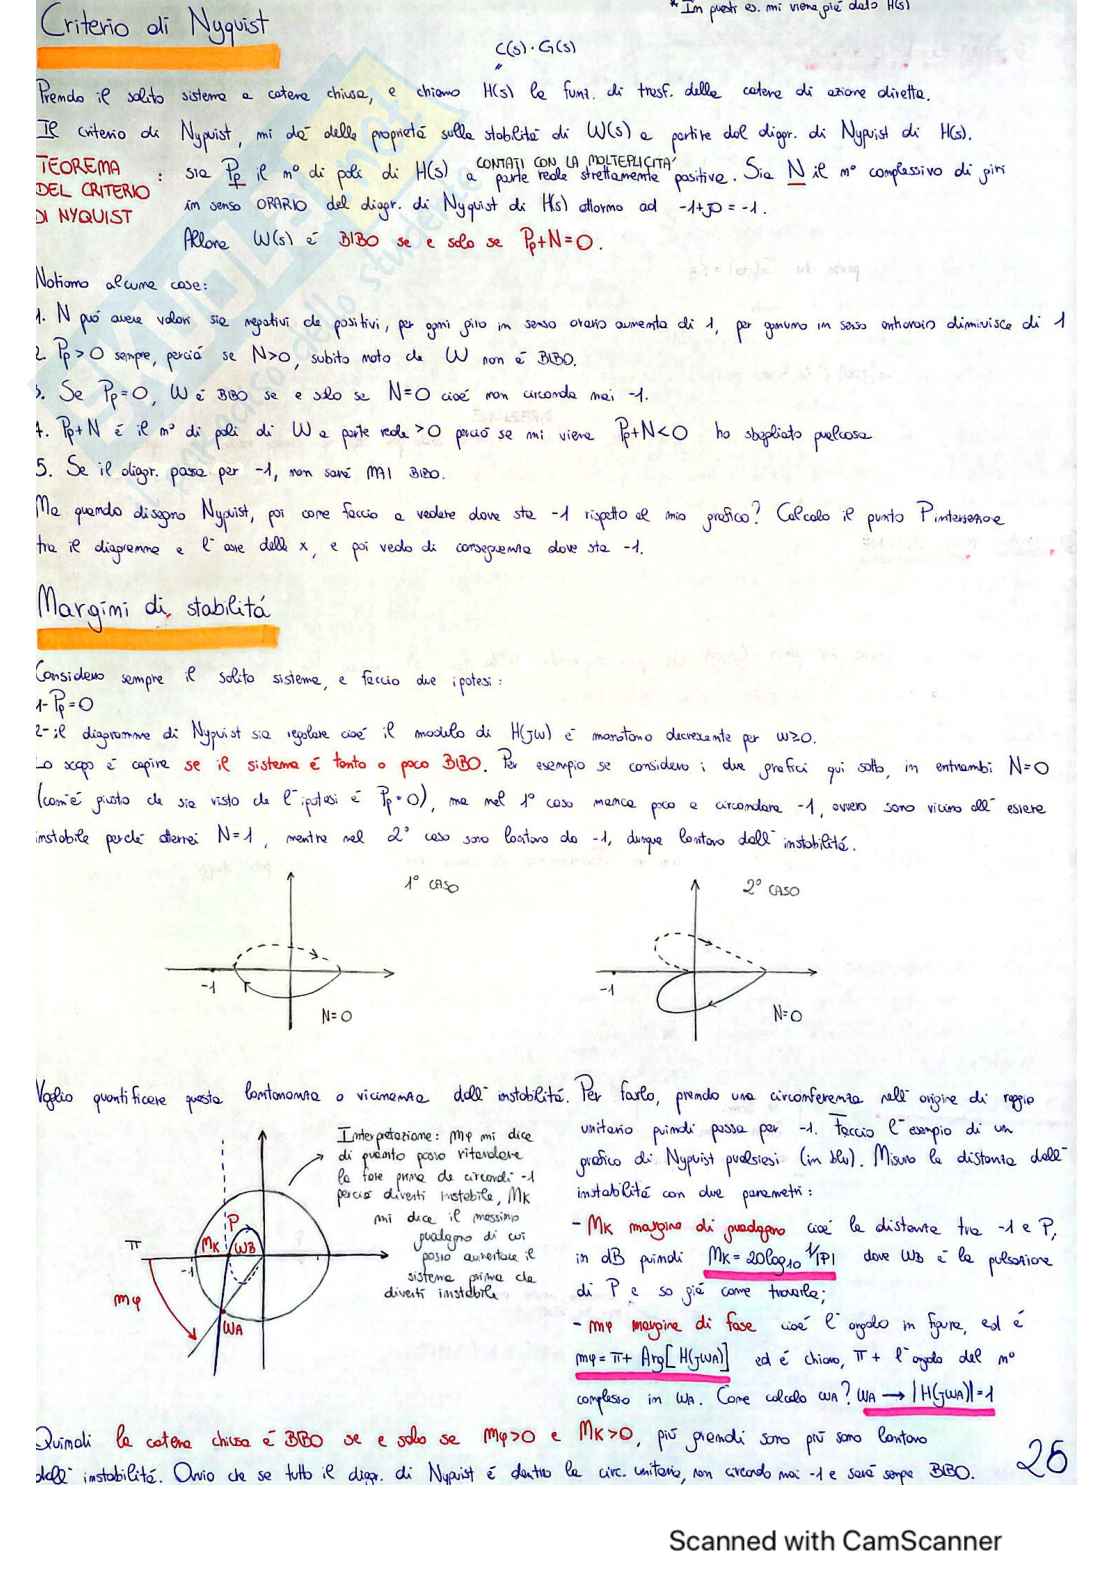 * In questi es. mi viene già dato H(s)
Criterio di Nyquist
C(s)·G(s)
"
Prendo il solito sistema a catena chiusa, e chiamo H(s) la funz. di trasf. della catena di azione diretta.
Il criterio di Nyquist, mi dà delle proprietà sulla stabilità di W(s) a partire dal diagr. di Nyquist di H(s).
TEOREMA DEL CRITERIO DI NYQUIST : sia Pp il n° di poli di H(s) a parte reale strettamente positiva. Sia N il n° complessivo di giri
CONTATI CON LA MOLTEPLICITA'
in senso ORARIO del diagr. di Nyquist di H(s) attorno ad -1+j0 = -1.
Allora W(s) è BIBO se e solo se Pp+N=0.
Notiamo alcune cose:
1. N può avere valori sia negativi che positivi, per ogni giro in senso orario aumenta di 1, per ognuno in senso antiorario diminuisce di 1
2. Pp>0 sempre, perciò se N>0, subito noto che W non è BIBO.
3. Se Pp=0, W è BIBO se e solo se N=0 cioè non circonda mai -1.
4. Pp+N è il n° di poli di W a parte reale >0 perciò se mi viene Pp+N<0 ho sbagliato qualcosa
5. Se il diagr. passa per -1, non sarà MAI BIBO.
Ma quando disegno Nyquist, poi come faccio a vedere dove sta -1 rispetto al mio grafico? Calcolo il punto P intersezione
tra il diagramma e l'asse delle x, e poi vedo di conseguenza dove sta -1.
Margini di stabilità
Considero sempre il solito sistema, e faccio due ipotesi:
1- Pp=0
2- il diagramma di Nyquist sia regolare cioè il modulo di H(jw) è monotono decrescente per w≥0.
Lo scopo è capire se il sistema è tanto o poco BIBO. Per esempio se considero i due grafici qui sotto, in entrambi N=0
(com'è giusto che sia visto che l'ipotesi è Pp=0), ma nel 1° caso manca poco a circondare -1, ovvero sono vicino all'essere
instabile perché otterrei N=1, mentre nel 2° caso sono lontano da -1, dunque lontano dall'instabilità.
1° CASO
-1
N=0
2° CASO
-1
N=0
Voglio quantificare questa lontananza o vicinanza dall'instabilità. Per farlo, prendo una circonferenza nell'origine di raggio
unitario quindi passa per -1. Faccio l'esempio di un
grafico di Nyquist qualsiasi (in blu). Misuro la distanza dall'
instabilità con due parametri:
- MK margine di guadagno cioè la distanza tra -1 e P,
in dB quindi MK = 20log10 1/|P| dove WB è la pulsazione
di P e so già come trovarla;
- mφ margine di fase cioè l'angolo in figura, ed è
mφ = π + Arg[H(jWA)] ed è chiaro, π + l'angolo del n°
complesso in WA. Come calcolo WA? WA → |H(jWA)|=1
Interpretazione: mφ mi dice
di quanto posso ritardare
la fase prima che circondi -1
perciò diventi instabile, MK
mi dice il massimo
guadagno di cui
posso aumentare il
sistema prima che
diventi instabile
P
π
MK
WB
-1
mφ
WA
Quindi la catena chiusa è BIBO se e solo se mφ>0 e MK>0, più grandi sono più sono lontano
dall'instabilità. Ovvio che se tutto il diagr. di Nyquist è dentro la circ. unitaria, non circondo mai -1 e sarà sempre BIBO.
26
Scanned with CamScanner